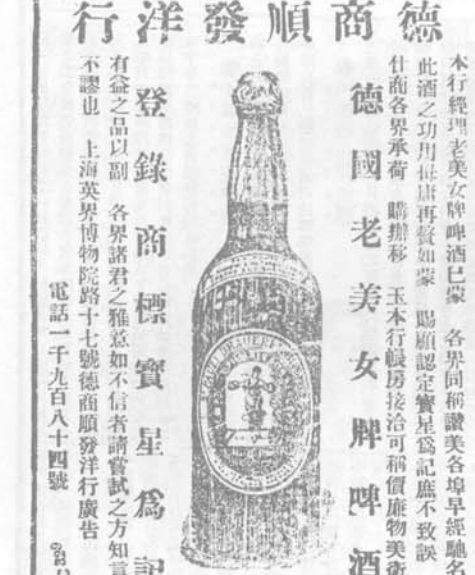 德商順發洋行
本行經理老美女牌啤酒已蒙 各界同稱讚美各埠早經馳名
此酒之功用毋庸再贅如蒙 賜顧認定寶星爲記庶不致誤
仕商各界承荷 購辦移 玉本行帳房接洽可稱價廉物美衛
德國老美女牌啤酒
登錄商標寶星爲記
有益之品以副 各界諸君之雅意如不信者請嘗試之方知言
不謬也 上海英界博物院路十七號德商順發洋行廣告
電話一千九百八十四號